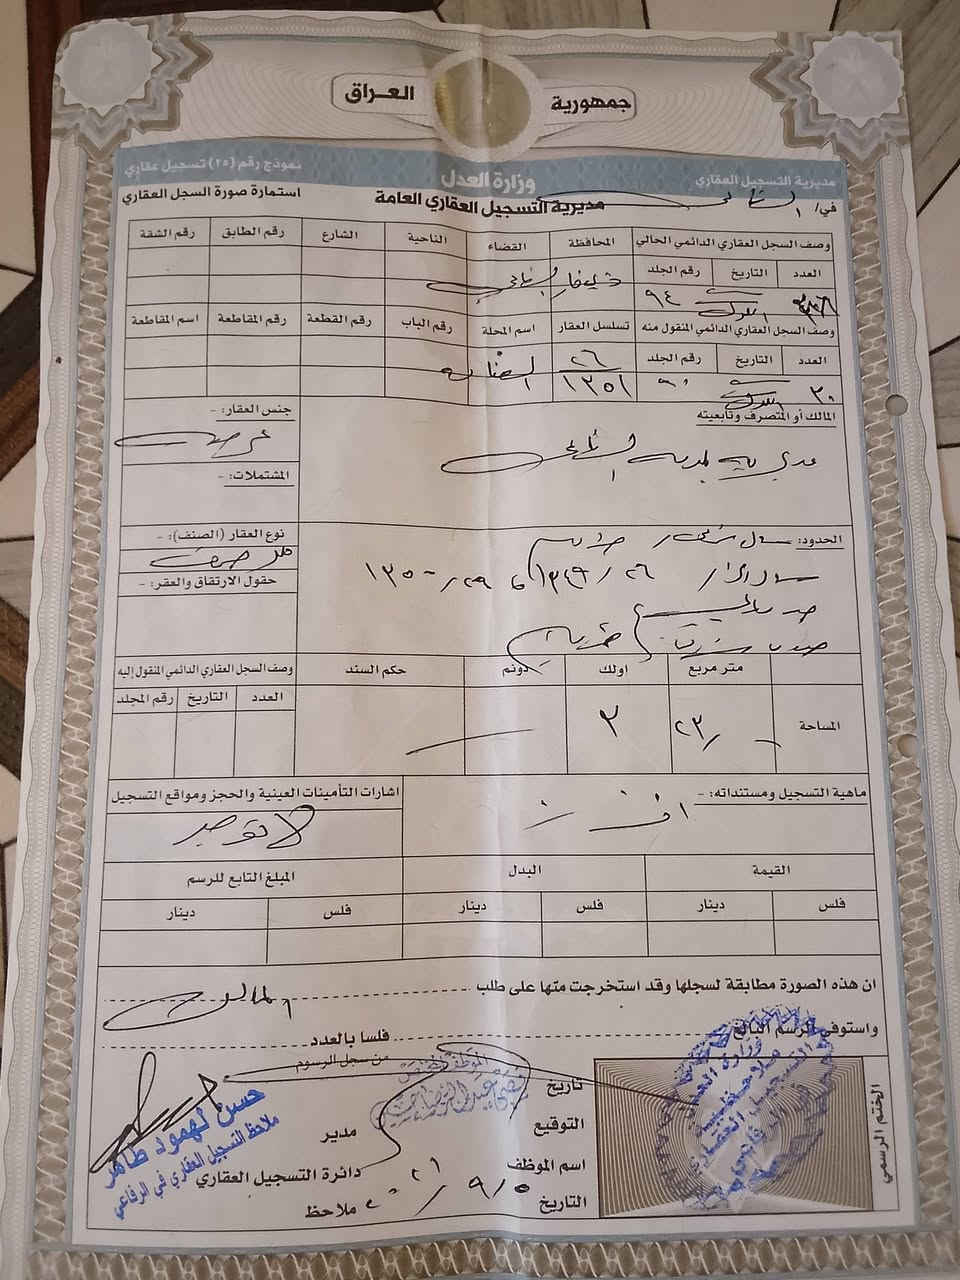 جمهورية العراق
مديرية التسجيل العقاري وزارة العدل نموذج رقم (٢٥) تسجيل عقاري
في/ الرفاعي مديرية التسجيل العقاري العامة استمارة صورة السجل العقاري
وصف السجل العقاري الدائمي الحالي المحافظة القضاء الناحية الشارع رقم الطابق رقم الشقة
العدد التاريخ رقم الجلد
٩٤ ذي قار الرفاعي
وصف السجل العقاري الدائمي المنقول منه تسلسل العقار اسم المحلة رقم الباب رقم القطعة رقم المقاطعة اسم المقاطعة
العدد التاريخ رقم الجلد ٢٦
٣٠ ١٣٥١
المالك أو المتصرف وتابعيته جنس العقار: -
مديرية بلدية الرفاعي عرصة
المشتملات: -
الحدود: نوع العقار (الصنف): -
٢٦/١٣٤٩ و ٢٩/١٣٥٠
حقوق الارتفاق والعقر: -
متر مربع اولك دونم حكم السند وصف السجل العقاري الدائمي المنقول إليه
العدد التاريخ رقم المجلد
المساحة ٢٣/ ٣
ماهية التسجيل ومستنداته: - اشارات التأمينات العينية والحجز ومواقع التسجيل
افراز لا توجد
القيمة البدل المبلغ التابع للرسم
فلس دينار فلس دينار فلس دينار
ان هذه الصورة مطابقة لسجلها وقد استخرجت متها على طلب المالك
واستوفي الرسم البالغ فلسا بالعدد
من سجل الرسوم
الموظف المختص
تاريخ
التوقيع
اسم الموظف
التاريخ ٩/٥
مدير
دائرة التسجيل العقاري
ملاحظ
حسن لهمود طاهر
ملاحظ التسجيل العقاري في الرفاعي
الختم الرسمي
وزارة العدل